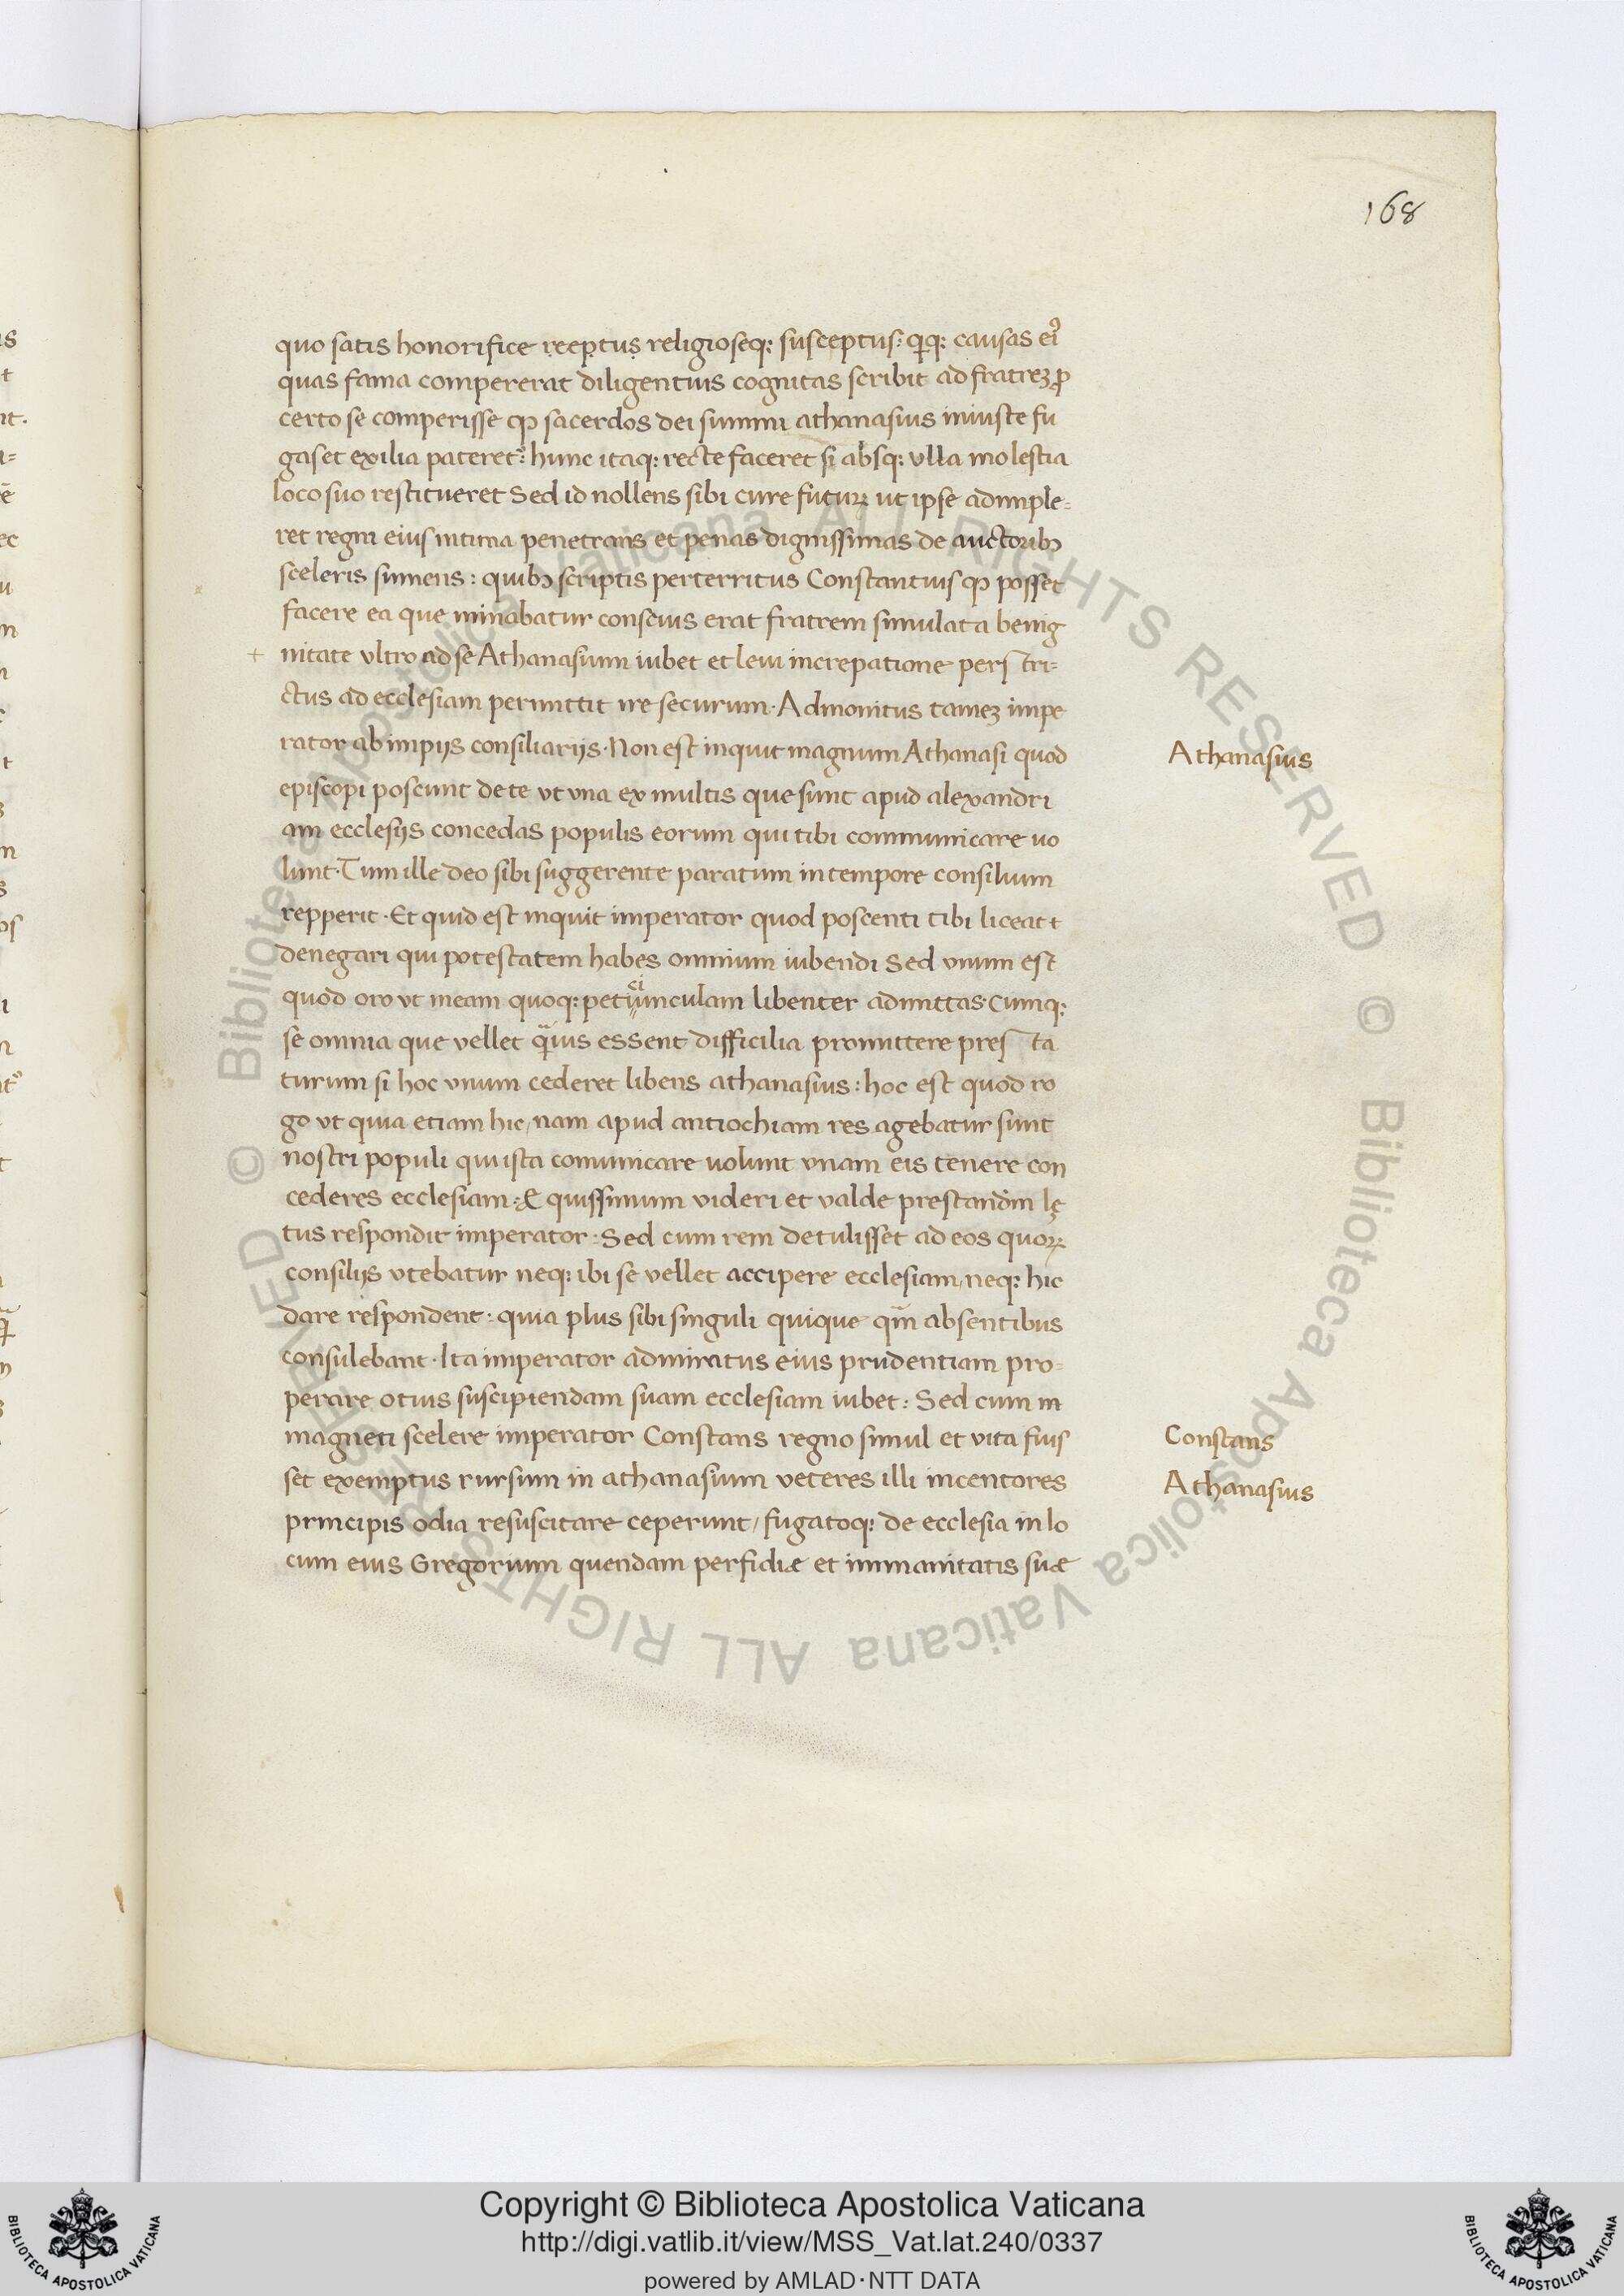 168
quo satis honorifice receptus religioseq: susceptus: q̅q: causas ei⁹
quas fama compererat diligentius cognitas scribit ad fratreꝫ ꝓ
certo se comperisse ꝙ sacerdos dei summi athanasius iniuste fu
gas et exilia pateret᷑: hunc itaq: recte faceret si absq: ulla molestia
loco suo restitueret Sed id nollens sibi cure futuꝝ ut ipse adimple=
ret regni eius intima penetrans et penas dignissimas de auctoribꝫ
sceleris sumens: quibꝫ scriptis perterritus Constantius ꝙ posset
facere ea que minabatur conscius erat fratrem simulata benig
+ nitate vltro ad se Athanasium iubet et leui increpatione perstri=
ctus ad ecclesiam permittit ire securum. Admonitus tameꝫ impe
rator ab impijs consiliarijs. Non est inquit magnum Athanasi quod
Athanasius
episcopi poscunt de te vt vna ex multis que sunt apud alexandri
am ecclesijs concedas populis eorum qui tibi communicare uo
lunt. Tum ille deo sibi suggerente paratum in tempore consilium
repperit. Et quid est inquit imperator quod poscenti tibi liceat
denegari qui potestatem habes omnium iubendi Sed vnum est
quod oro vt meam quoq: petiunculam libenter admittas. Cumq:
ci
se omnia que vellet q̅uis essent difficilia promittere presta
turum si hoc vnum cederet libens athanasius: hoc est quod ro
go vt quia etiam hic, nam apud antiochiam res agebatur sunt
nostri populi qui ista comunicare uolunt vnam eis tenere con
cederes ecclesiam: Equissimum videri et valde prestandm̅ lę
tus respondit imperator: Sed cum rem detulisset ad eos quoꝝ
consilijs vtebatur neq: ibi se vellet accipere ecclesiam, neq: hic
dare respondent: quia plus sibi singuli quique qm̅ absentibus
consulebant. Ita imperator admiratus eius prudentiam pro=
perare otius suscipiendam suam ecclesiam iubet: Sed cum in
magneti scelere imperator Constans regno simul et vita fuis
Constans
set exemptus rursum in athanasium veteres illi incentores
Athanasius
principis odia resuscitare ceperunt, fugatoq: de ecclesia in lo
cum eius Gregorium quendam perfidiæ et immanitatis suæ
© Biblioteca Apostolica Vaticana ALL RIGHTS RESERVED © Biblioteca Apostolica Vaticana ALL RIGHTS RESERVED
BIBLIOTECA APOSTOLICA VATICANA
Copyright © Biblioteca Apostolica Vaticana
http://digi.vatlib.it/view/MSS_Vat.lat.240/0337
powered by AMLAD·NTT DATA
BIBLIOTECA APOSTOLICA VATICANA